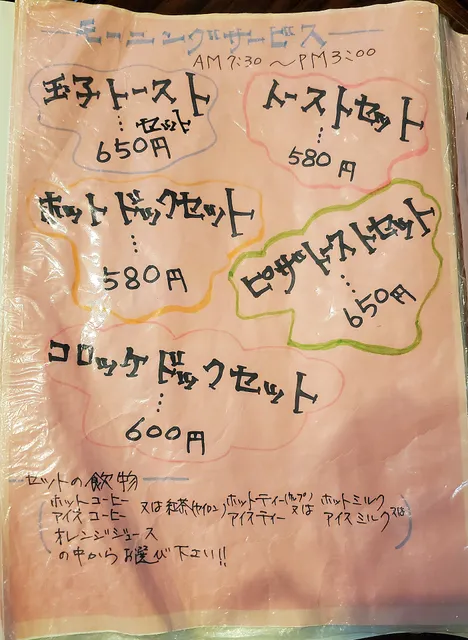 モーニングサービス
AM7:30～PM3:00
玉子トースト
セット
650円
トーストセット
580円
ホットドックセット
580円
ピザトーストセット
650円
コロッケドックセット
600円
セットの飲物
ホットコーヒー 又は 紅茶(セイロン) ホットティー(カップ) ホットミルク
アイスコーヒー アイスティー 又は アイスミルク 又は
オレンジジュース
の中からお選び下さい!!